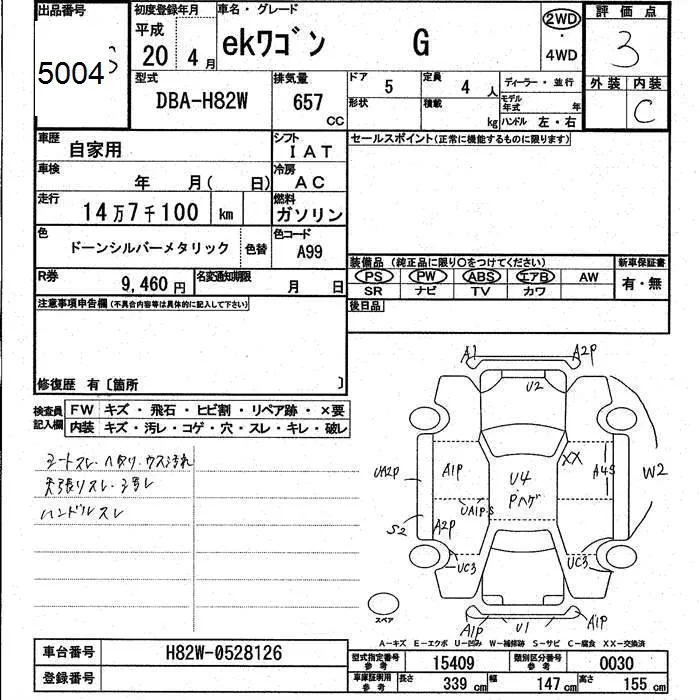 出品番号
5004
初度登録年月
平成
20 4 月
車名・グレード
ekワゴン G
2WD
・
4WD
評価点
3
型式
DBA-H82W
排気量
657
CC
ドア
5
定員
4 人
ディーラー・並行
形状
積載
kg
モデル年式 年
ハンドル 左・右
外装 内装
C
車歴
自家用
シフト
IAT
セールスポイント(正常に機能するものに限ります)
車検
年 月( 日)
冷房
AC
走行
14万7千100 km
燃料
ガソリン
色
ドーンシルバーメタリック
色替
色コード
A99
装備品 (純正品に限り○をつけてください)
新車保証書
PS PW ABS エアB AW
SR ナビ TV カワ
有・無
R券
9,460 円
名変通知期限
月 日
後日品
注意事項申告欄(不具合内容等は具体的に記入して下さい)
修復歴 有〔箇所 〕
検査員記入欄
FW キズ・飛石・ヒビ割・リペア跡・×要
内装 キズ・汚レ・コゲ・穴・スレ・キレ・破レ
シートスレ・ヘタリ・ウス汚れ
天張りスレ・ヨゴレ
ハンドルスレ
A1 A2P
U2
UA2P A1P U4 XX A4S W2
Pハゲ
UA1P-S
S2 A2P
UC3 UC3
A1P U1 A1P
スペア
A-キズ E-エクボ U-凹み W-補修跡 S-サビ C-腐食 XX-交換済
車台番号
H82W-0528126
登録番号
型式指定番号
参考
15409
類別区分番号
参考
0030
車庫証明用
参考
長さ
339 cm
幅
147 cm
高さ
155 cm